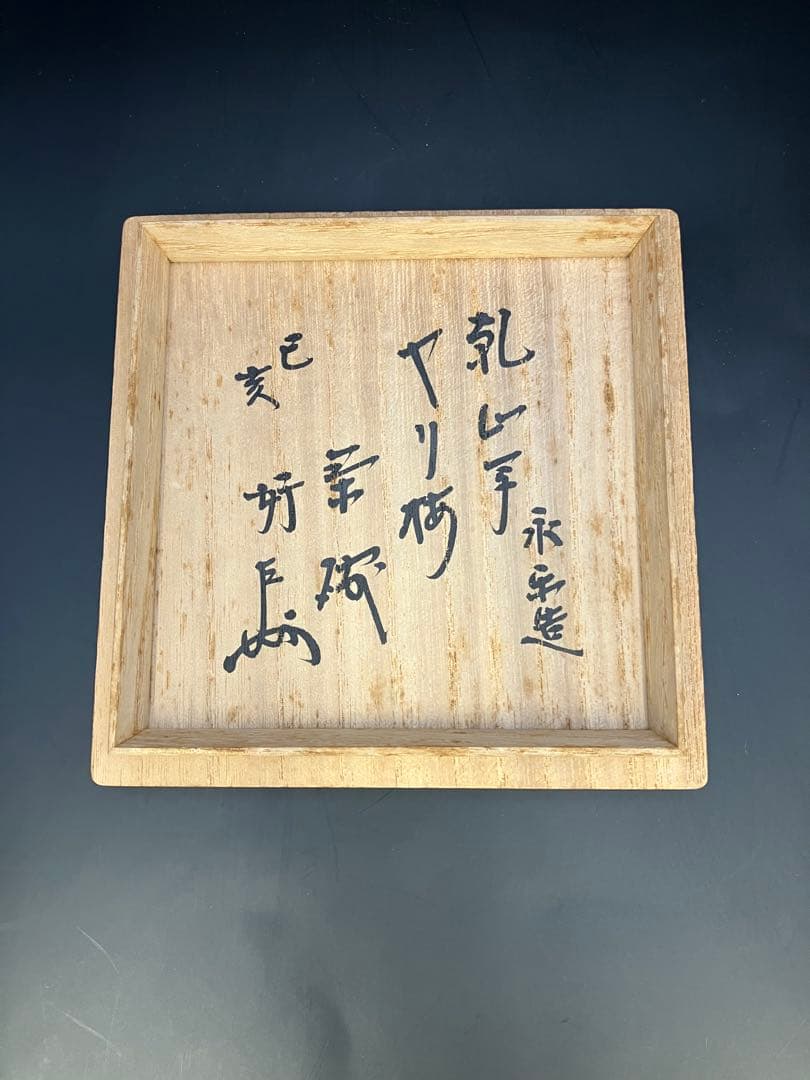 乾山写
永楽造
ヤリ梅
茶碗
己亥
好